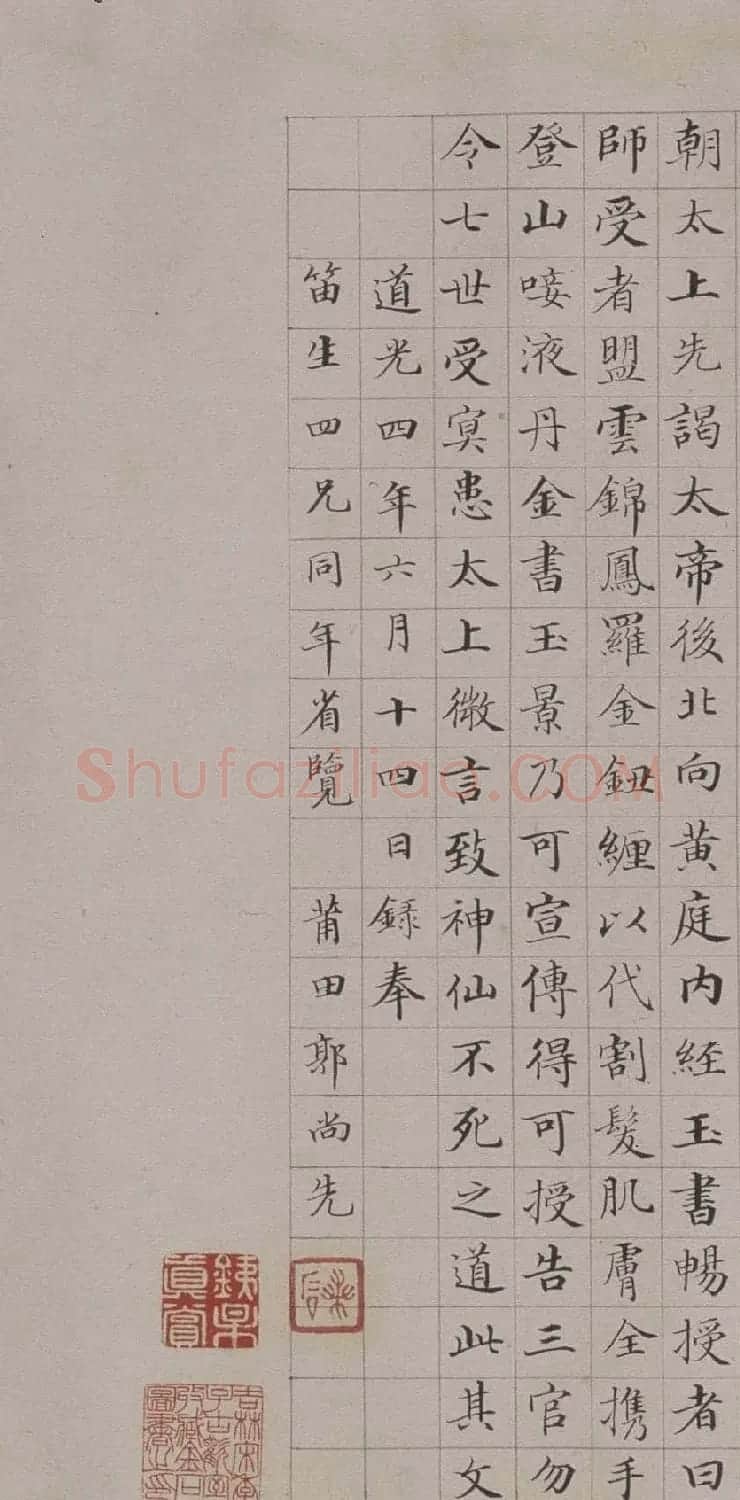 朝太上先謁太帝後北向黄庭内経玉書暢授者曰
師受者盟雲錦鳳羅金鈕纏以代割髮肌膚全携手
登山唼液丹金書玉景乃可宣傳得可授告三官勿
令七世受冥患太上微言致神仙不死之道此其文
道光四年六月十四日錄奉
笛生四兄同年省覽 莆田郭尚先
Shufaziliao.COM